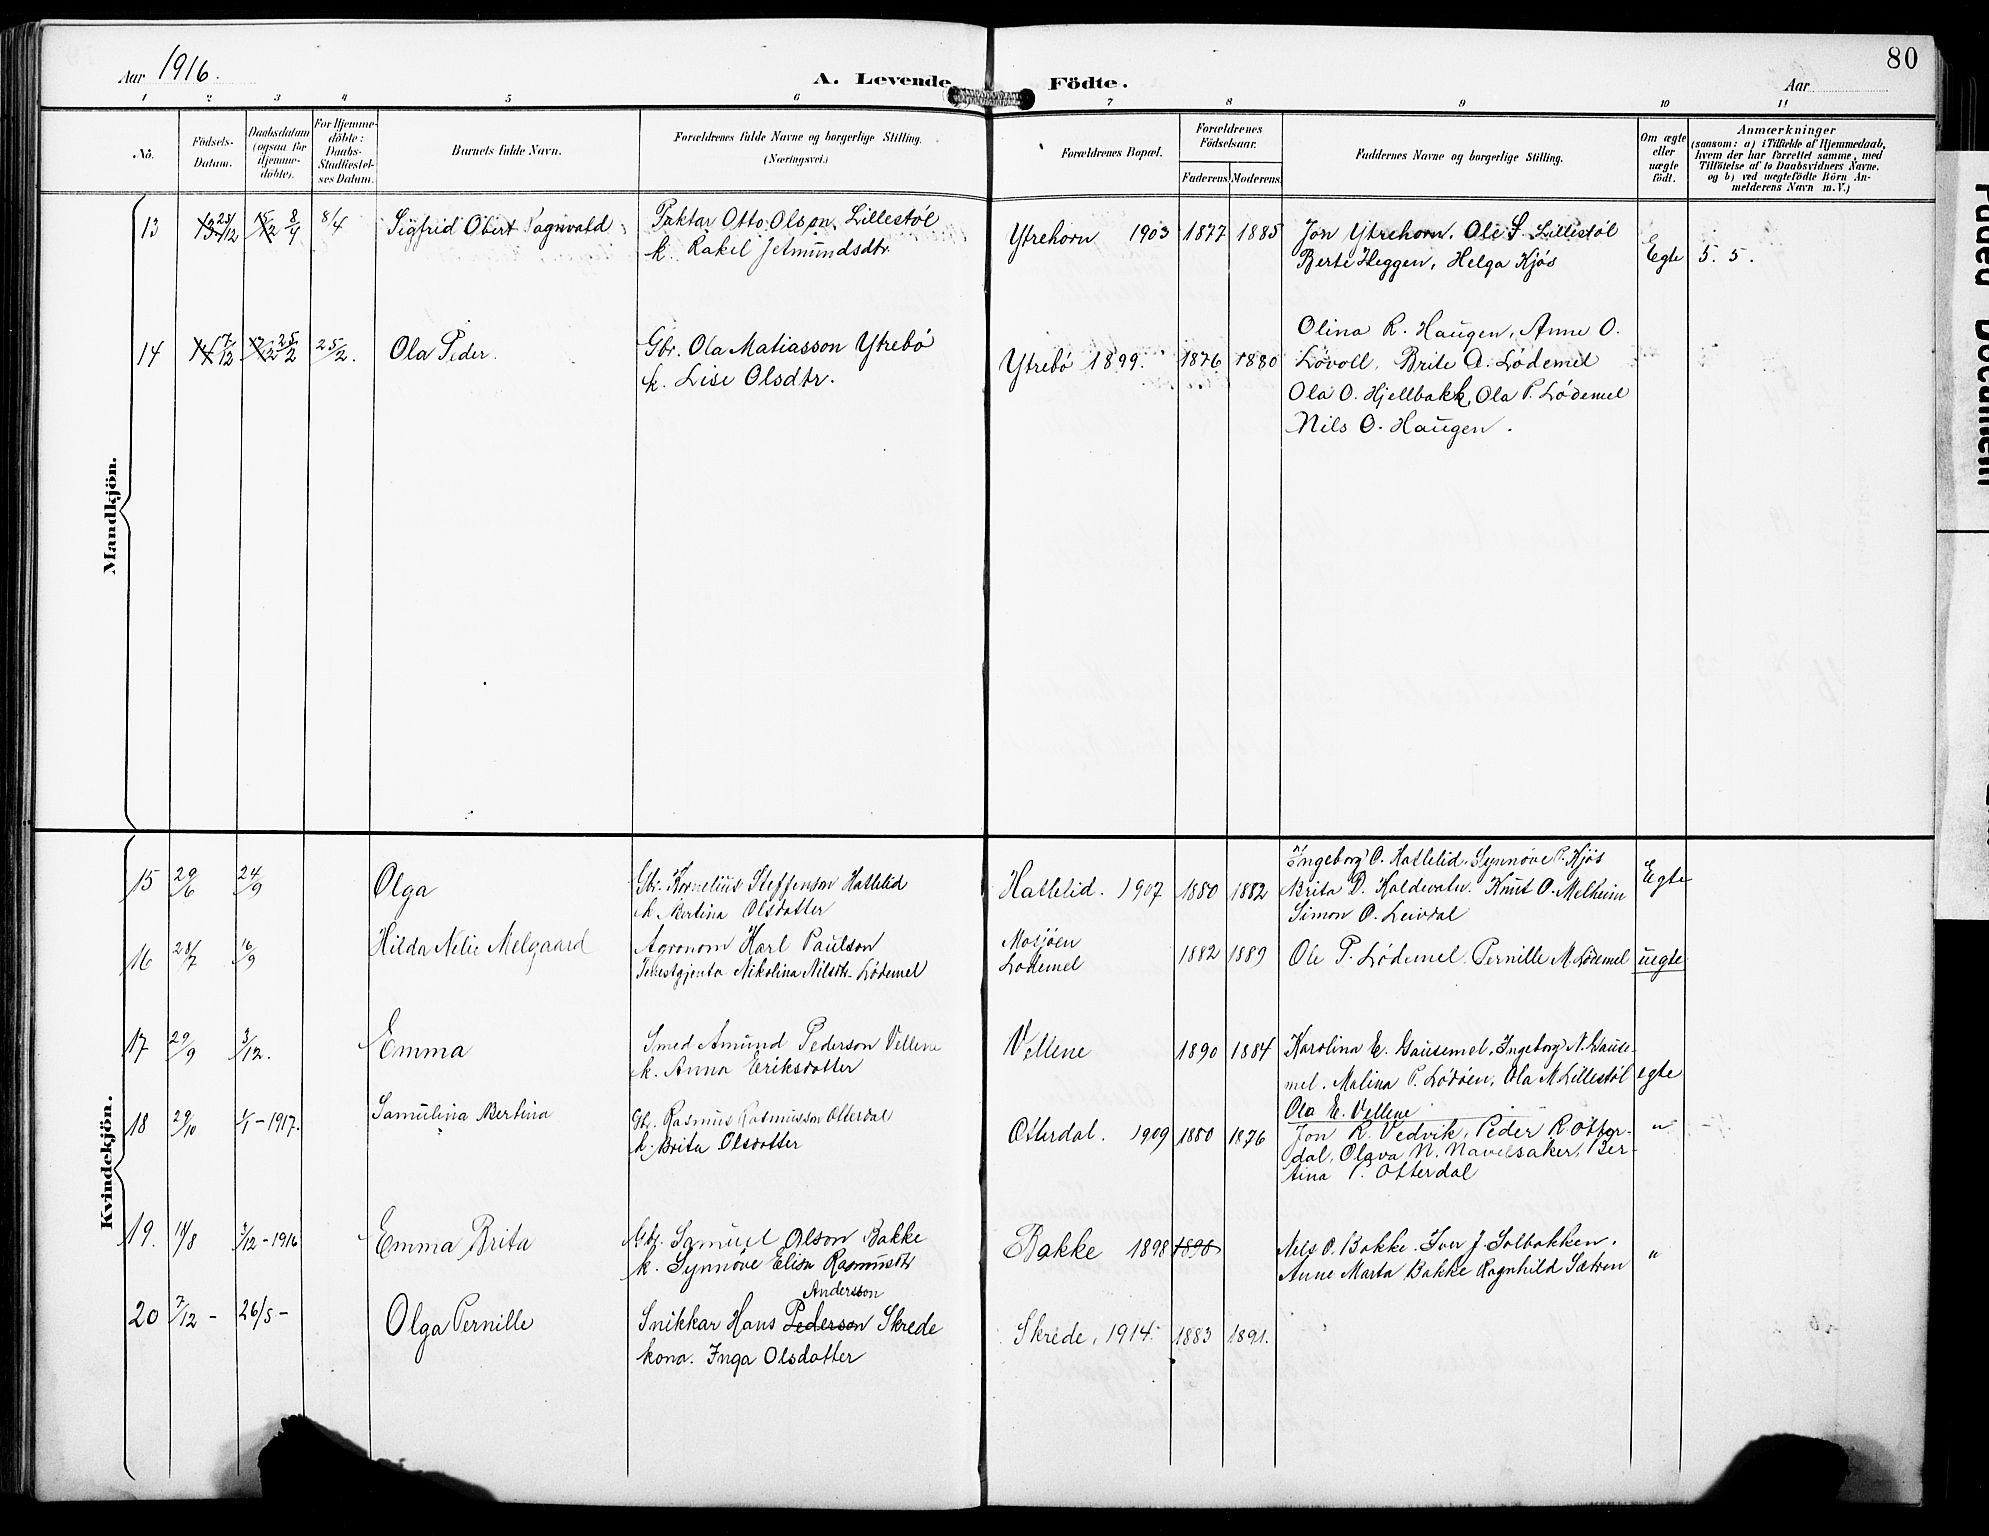 80
Aar 1916.
A. Levende Födte.
Aar
1 2 3 4 5 6 7 8 9 10 11
No.
Födsels-Datum.
Daabsdatum (ogsaa for Hjemme-döbte).
For Hjemme-döbte: Daabs-Stadfæstel-ses Datum.
Barnets fulde Navn.
Forældrenes fulde Navne og borgerlige Stilling.
(Næringsvei.)
Forældrenes Bopæl.
Forældrenes Födselsaar.
Faderens. Moderens.
Faddernes Navne og borgerlige Stilling.
Om ægte eller uægte födt.
Anmærkninger
(saasom: a) i Tilfælde af Hjemmedaab,
hvem der har forrettet samme, med
Tilföielse af to Daabsvidners Navne.
og b) ved uægtefödte Börn An-
melderens Navn m.V.)
Mandkjön.
13 23/12 8/4 8/4 Sigfrid Obert Ragnvald Paktar Otto Olson Lillestøl Ytrehorn 1903 1877 1885 Jon Ytrehorn. Ole S. Lillestøl
k. Rakel Jetmundsdtr. Berte Heggen, Helga Kjøs Egte 5. 5.
Olina R. Haugen, Anne O.
14 17/12 25/2 25/2. Ola Peder. Gbr. Ola Matiasson Ytrebö Ytrebö 1899. 1876 1880 Lövoll, Brite A. Lødemel
k. Lise Olsdtr. Ola O. Hjellbakk, Ola P. Lødemel
Nils O. Haugen.
Kvindekjön.
Ingeborg O. Hatlelid. Synnøve P. Kjøs
15 29/6 24/9 Olga Gbr. Kornelius Steffenson Hatlelid Hatlelid. 1907 1880 1882 Brita D. Koldevatn. Knut O. Melheim Egte
k. Bertina Olsdatter Simon O. Leivdal
16 28/7 16/9 Hilda Nelie Melgaard Agronom Karl Paulson Mosjøen
Tenestgjenta Nikolina Nilsdtr. Lödemel Lødemel 1882 1889 Ole P. Lødemel. Pernille M. Lødemel uegte
17 29/9 3/12. Emma Smed Amund Pederson Vellene Vellene 1890 1884 Karolina E. Gausemel, Ingeborg N. Gause-
k. Anna Eriksdatter mel. Malina P. Lødöen, Ola M Lillestøl egte
Ola E. Vellene
18 29/10 1/1 - 1917. Samulina Bertina Gbr. Rasmus Rasmusson Otterdal Otterdal. 1909 1880 1876 Jon R. Vedvik, Peder R. Otter- "
k. Brita Olsdatter dal, Olava N. Navelsaker, Ber-
tina P. Otterdal
19. 18/8 3/12 - 1916 Emma Brita Gbr. Samuel Olson Bakke Bakke 1898 1898 Nils O. Bakke. Iver J. Solbakken. "
k. Synnøve Elisa Rasmusdtr Anne Marta Bakke Ragnhild Sætren
Anderson
20 7/12 - 26/5 - Olga Pernille Snikkar Hans Pederson Skrede Skrede, 1914. 1883 1891.
kona. Inga Olsdatter